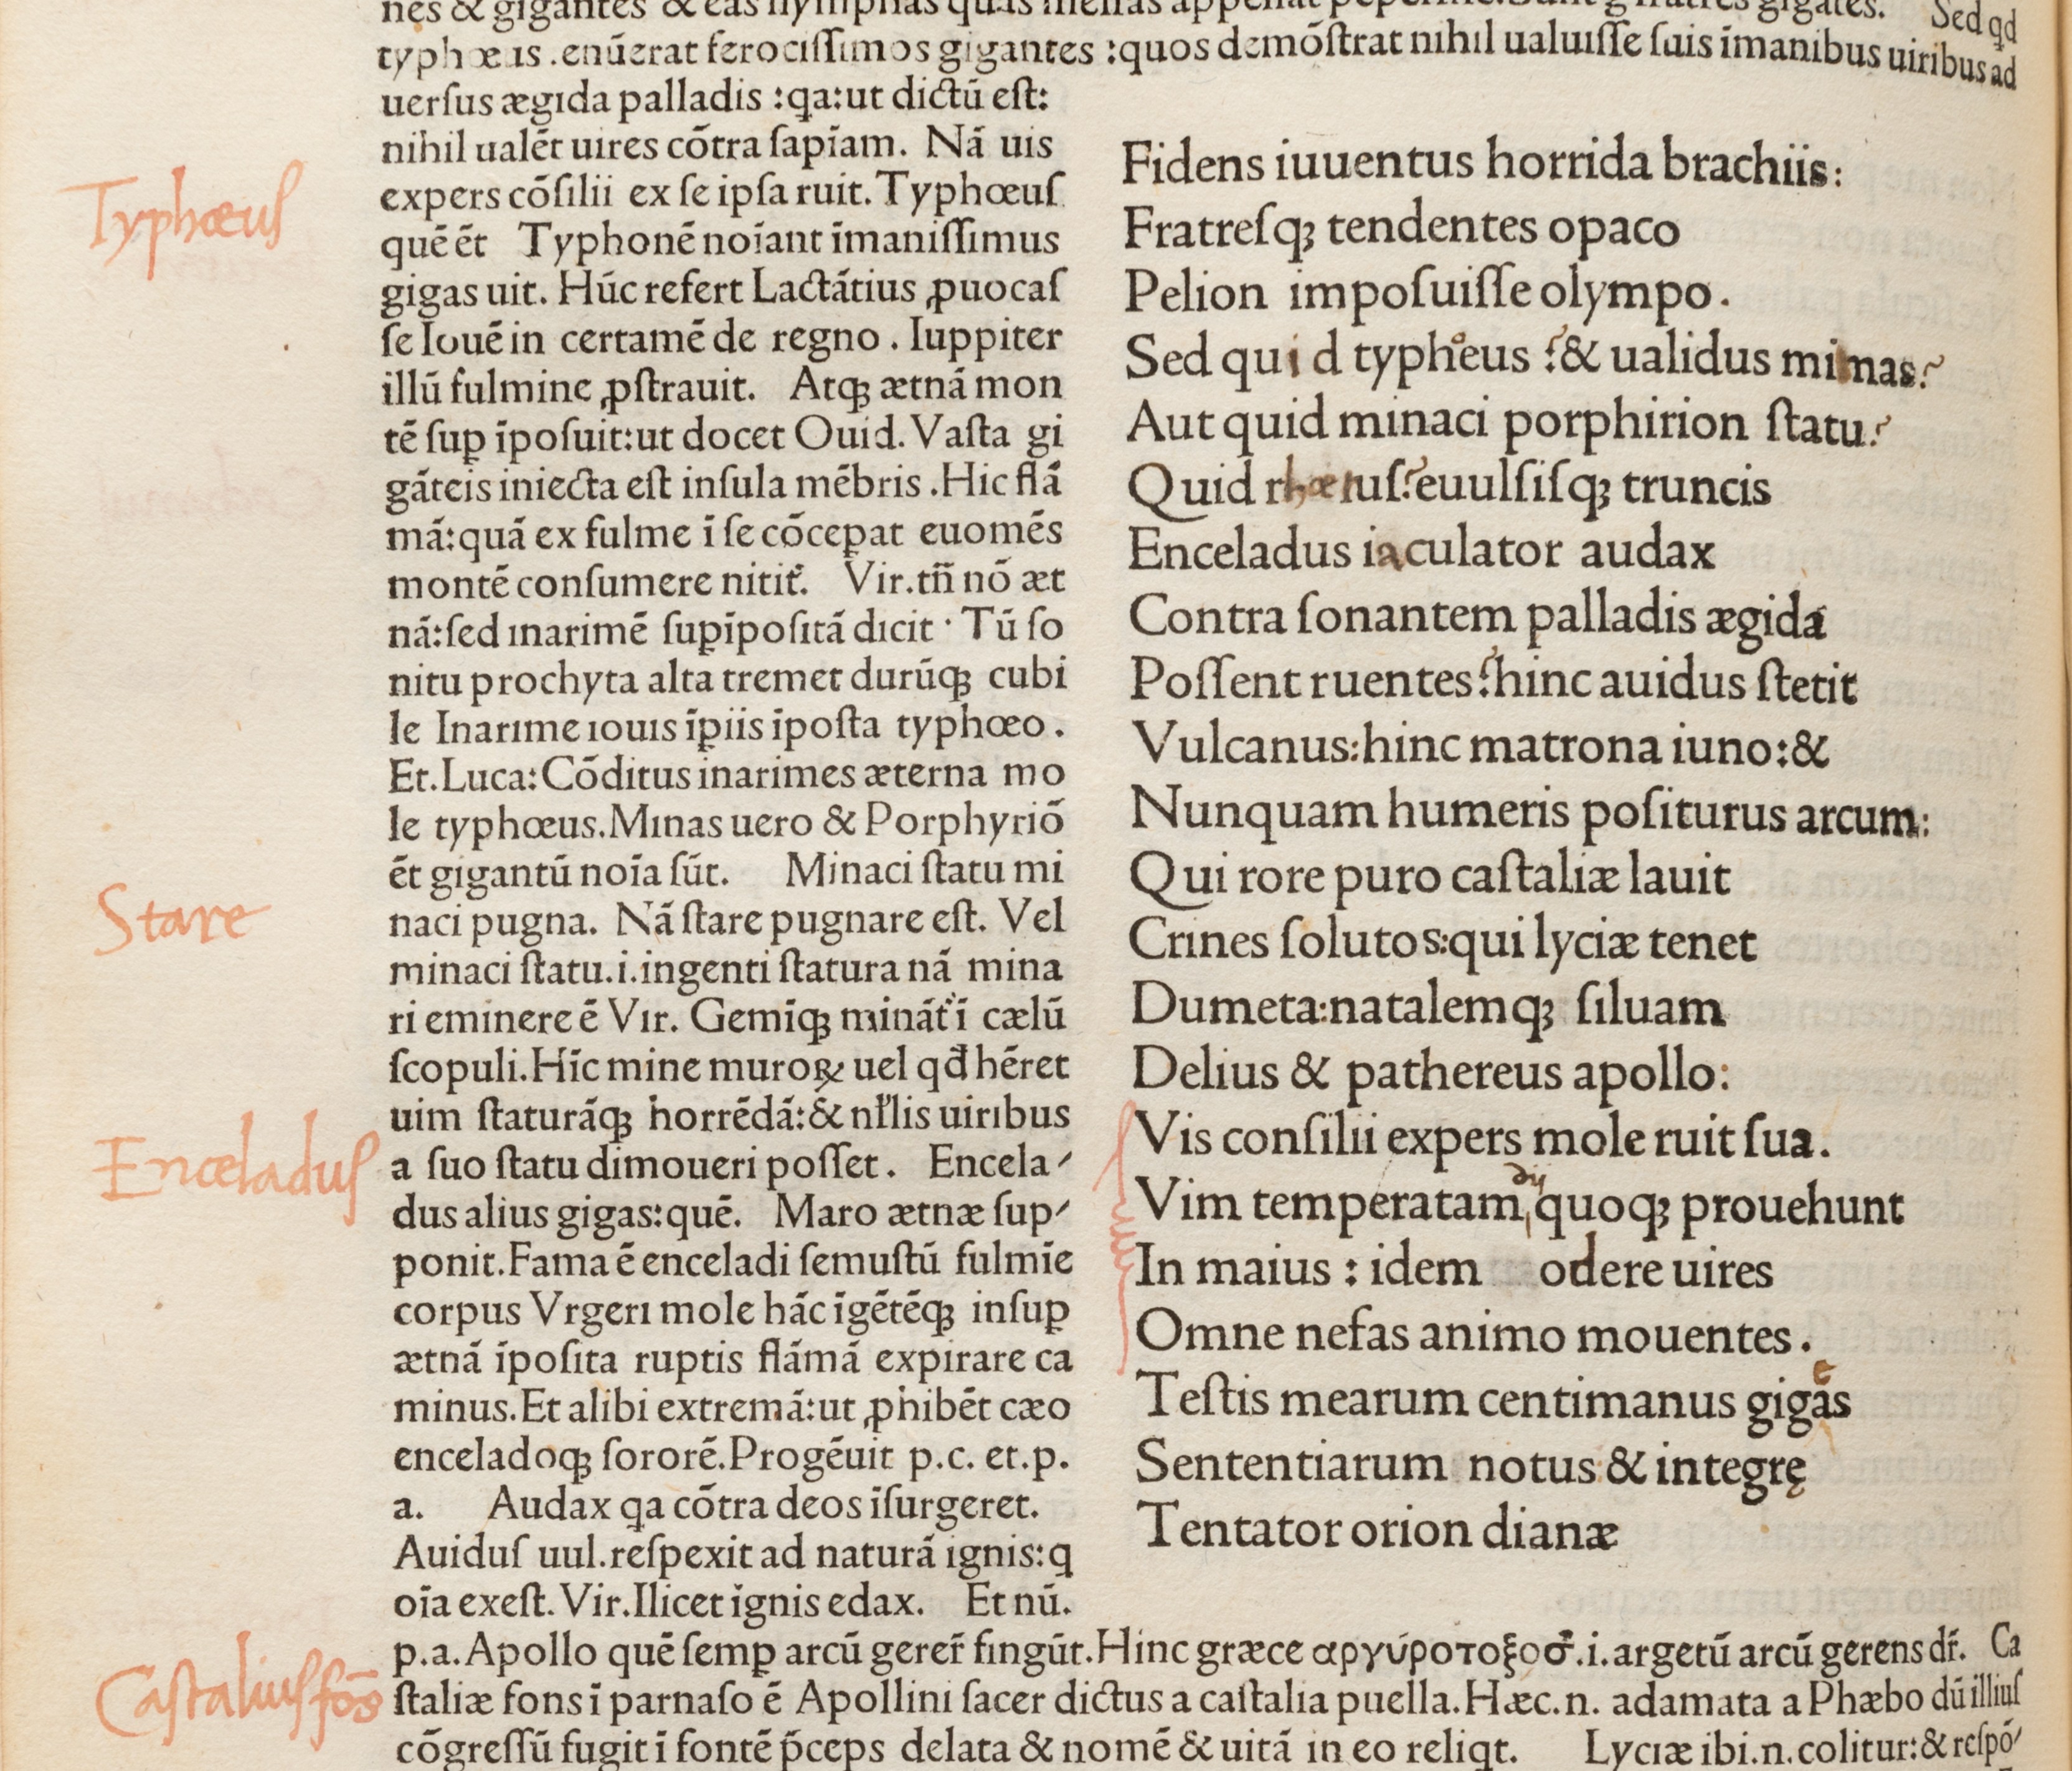 nes & gigantes & eas nymphas quas
typhœus .enūerat ferociſſimos gigantes :quos demōſtrat nihil ualuiſſe ſuis īmanibus uiribus ad
Sed qd
uerſus ægida palladis :qa:ut dictū eſt:
nihil ualēt uires cōtra ſapīam. Nā uis
expers cōſilii ex ſe ipſa ruit. Typhœuſ
quē ēt Typhonē noīant īmaniſſimus
gigas uit. Hūc refert Lactātius ꝓuocaſ
ſe Iouē in certamē de regno . Iuppiter
illū fulmine ꝓſtrauit. Atqꝫ ætnā mon
tē ſuꝑ īpoſuit:ut docet Ouid. Vaſta gi
gāteis iniecta eſt inſula mēbris .Hic flā
mā:quā ex fulme ī ſe cōceꝑat euomēs
montē conſumere nitit᷑. Vir.tñ nō æt
nā:ſed inarimē ſuꝑīpoſitā dicit · Tū ſo
nitu prochyta alta tremet durūqꝫ cubi
le Inarime iouis īꝑiis īpoſta typhœo .
Et.Luca:Cōditus inarimes æterna mo
le typhœus.Minas uero & Porphyriō
ēt gigantū noīa ſūt. Minaci ſtatu mi
naci pugna. Nā ſtare pugnare eſt. Vel
minaci ſtatu.i.ingenti ſtatura nā mina
ri eminere ē Vir. Gemīqꝫ mināt᷑ ī cælū
ſcopuli.Hīc mine muroꝝ uel qđ hēret
uim ſtaturāqꝫ horrēdā:& nłlis uiribus
a ſuo ſtatu dimoueri poſſet . Encela⸗
dus alius gigas:quē. Maro ætnæ ſup⸗
ponit.Fama ē enceladi ſemuſtū fulmīe
corpus Vrgeri mole hāc īgētēqꝫ inſuꝑ
ætnā īpoſita ruptis flāmā expirare ca
minus.Et alibi extremā:ut ꝓhibēt cæo
enceladoqꝫ ſororē.Progēuit p.c. et.p.
a. Audax qa cōtra deos īſurgeret.
Auiduſ uul.reſpexit ad naturā ignis:q
oīa exeſt. Vir.Ilicet ignis edax. Et nū.
Typhœuſ
Stare
Enceladuſ
Fidens iuuentus horrida brachiis:
Fratreſqꝫ tendentes opaco
Pelion impoſuiſſe olympo .
Sed quid typhœus ?& ualidus mimas?
Aut quid minaci porphirion ſtatu?
Quid rhœtuſ?euulſiſqꝫ truncis
Enceladus iaculator audax
Contra ſonantem palladis ægida
Poſſent ruentes?hinc auidus ſtetit
Vulcanus:hinc matrona iuno:&
Nunquam humeris poſiturus arcum:
Qui rore puro caſtaliæ lauit
Crines ſolutos:qui lyciæ tenet
Dumeta:natalemqꝫ ſiluam
Delius & pathereus apollo:
Vis conſilii expers mole ruit ſua.
Vim temperatam dij quoqꝫ prouehunt
In maius : idem odere uires
Omne nefas animo mouentes .
Teſtis mearum centimanus gigas
Sententiarum notus & integrę
Tentator orion dianæ
p.a.Apollo quē ſemꝑ arcū gerer̄ fingūt.Hinc græce αργύροτοξοσ.i.argetū arcū gerens dr̄. Ca
Caſtaliuſ fōs
ſtaliæ fons ī parnaſo ē Apollini ſacer dictus a caſtalia puella.Hæc.n. adamata a Phæbo dū illiuſ
cōgreſſū fugit ī fontē p̄ceps delata & nomē & uitā in eo reliqt. Lyciæ ibi.n.colitur:& reſpō⸗